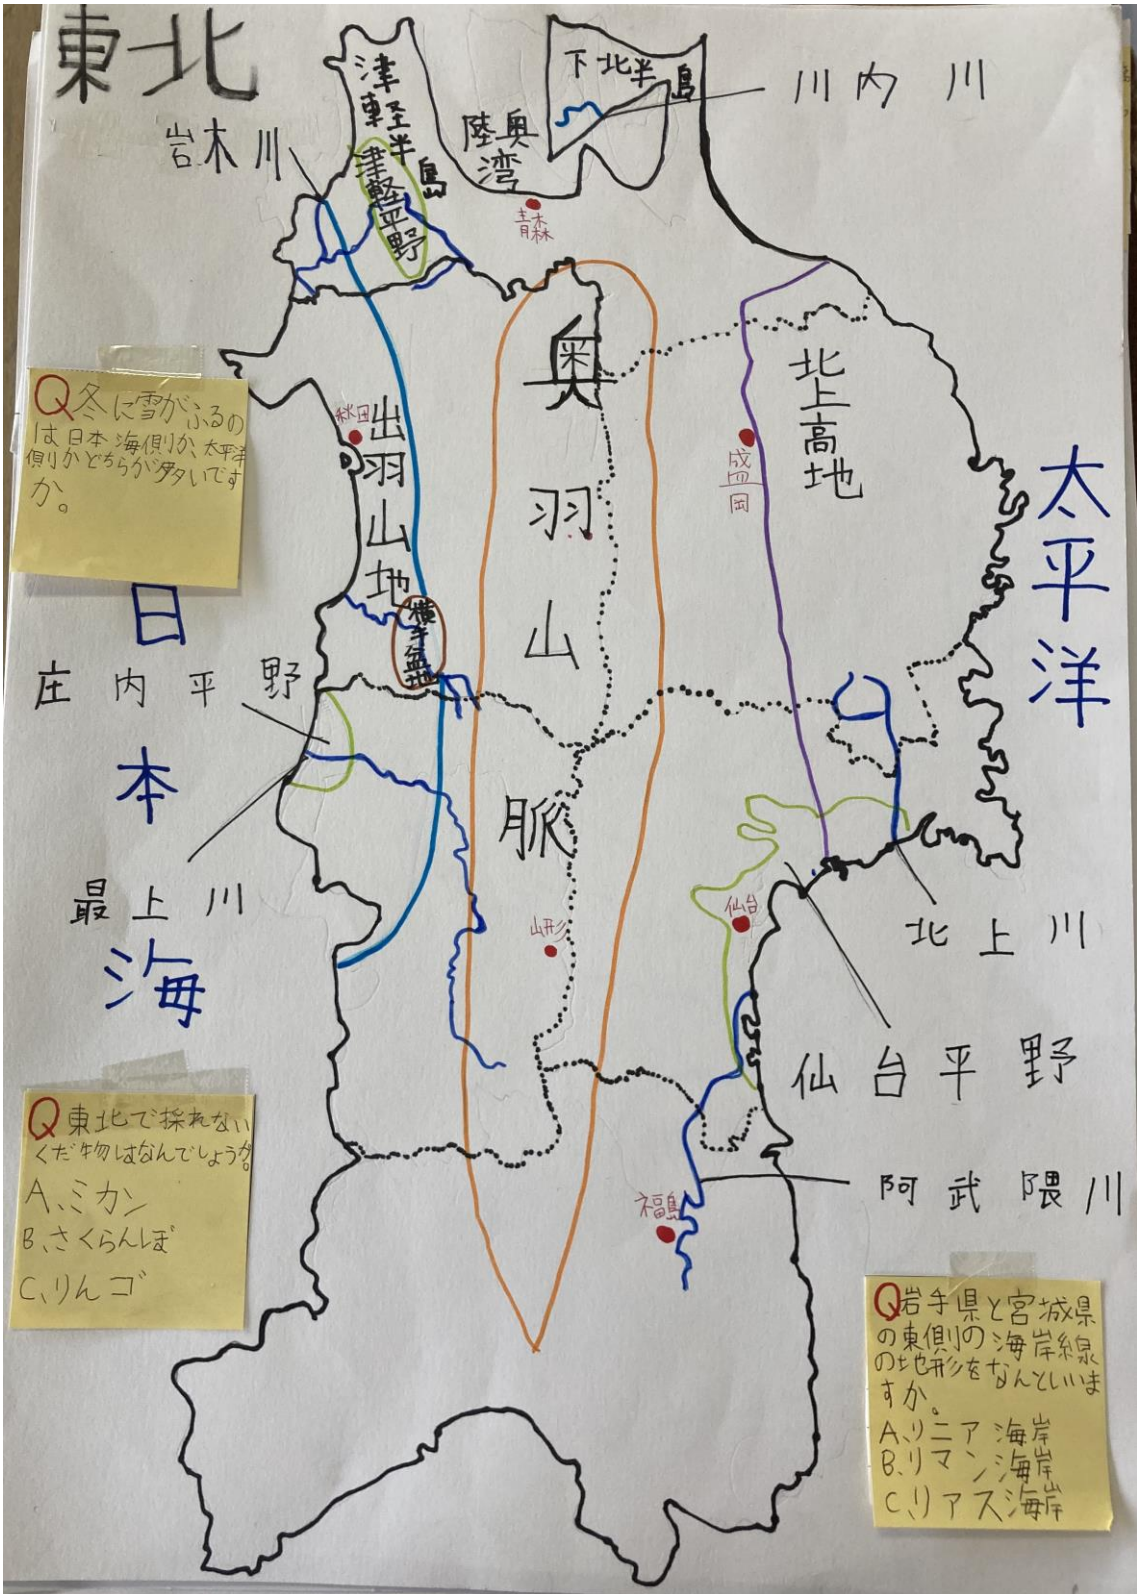 東北
津軽半島
下北半島
川内川
岩木川
陸奥湾
津軽平野
青森
奥羽山脈
北上高地
Q冬に雪がふるの
は日本海側か、太平洋
側かどちらが多いです
か。
秋田
出羽山地
盛岡
太平洋
日本海
横手盆地
庄内平野
最上川
山形
仙台
北上川
仙台平野
Q東北で採れない
くだ物はなんでしょうか。
A、ミカン
B、さくらんぼ
C、りんゴ
阿武隈川
福島
Q岩手県と宮城県
の東側の海岸線
の地形をなんといいま
すか。
A、リニア海岸
B、リマン海岸
C、リアス海岸